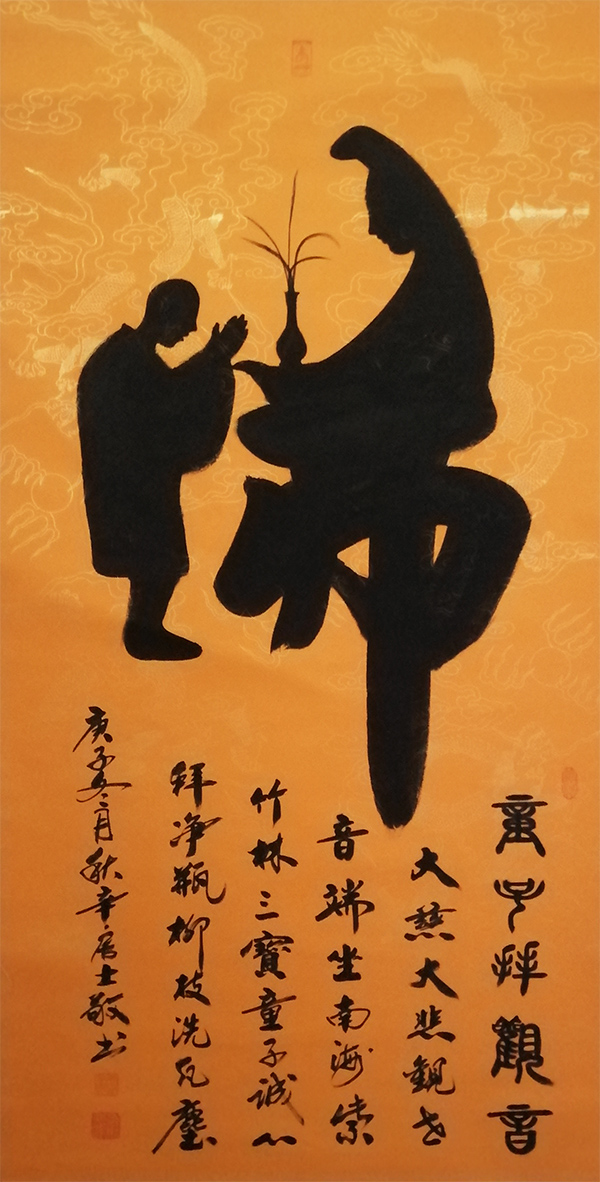 童子拜觀音
大慈大悲觀世
音端坐南海紫
竹林三寶童子誠心
拜净瓶柳枝洗凡塵
庚子冬月秋辛居士敬书